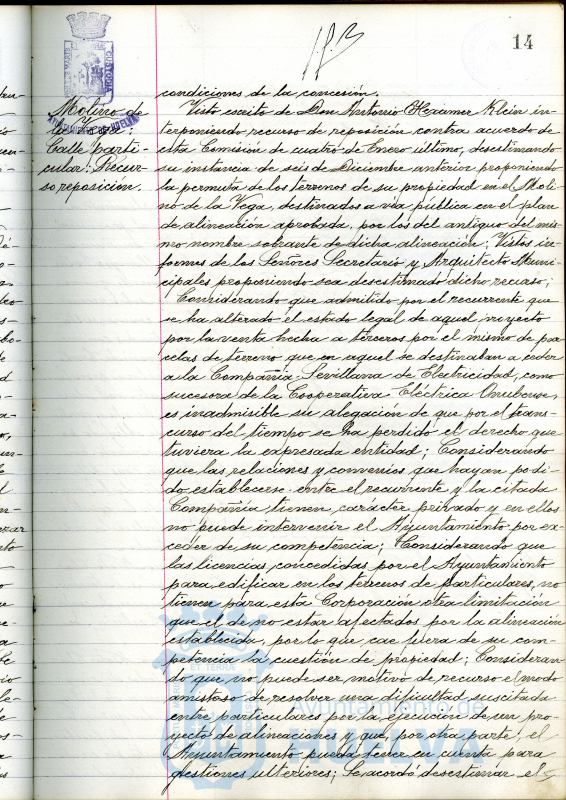 14
condiciones de la concesión.
Molino de
la Vega:
Calle parti-
cular: Recur-
so reposición.
Visto escrito de Don Antonio Hexamer Klein in-
terponiendo recurso de reposición contra acuerdo de
esta Comisión de cuatro de Enero último, desestimando
su instancia de seis de Diciembre anterior proponiendo
la permuta de los terrenos de su propiedad en el Moli-
no de la Vega, destinados a vía pública en el plan
de alineación aprobada, por los del antiguo del mis-
mo nombre sobrante de dicha alineación; Vistos in-
formes de los Señores Secretario y Arquitecto Muni-
cipales proponiendo sea desestimado dicho recurso;
Considerando que admitido por el recurrente que
se ha alterado el estado legal de aquel proyecto
por la venta hecha a terceros por el mismo de par-
celas de terreno que en aquel se destinaban a ceder
a la Compañía Sevillana de Electricidad, como
sucesora de la Cooperativa Eléctrica Onubense,
es inadmisible su alegación de que por el trans-
curso del tiempo se ha perdido el derecho que
tuviera la expresada entidad; Considerando
que las relaciones y convenios que hayan podi-
do establecerse entre el recurrente y la citada
Compañía tienen carácter privado y en ellos
no puede intervenir el Ayuntamiento por ex-
ceder de su competencia; Considerando que
las licencias concedidas por el Ayuntamiento
para edificar en los terrenos de particulares, no
tienen para esta Corporación otra limitación
que el de no estar afectados por la alineación
establecida, por lo que cae fuera de su com-
petencia la cuestión de propiedad; Consideran-
do que no puede ser motivo de recurso el modo
amistoso de resolver una dificultad suscitada
entre particulares por la ejecución de un pro-
yecto de alineaciones y que, por otra parte, el
Ayuntamiento pueda tener en cuenta para
gestiones ulteriores; Se acordó desestimar el
Ayuntamiento de
HUELVA